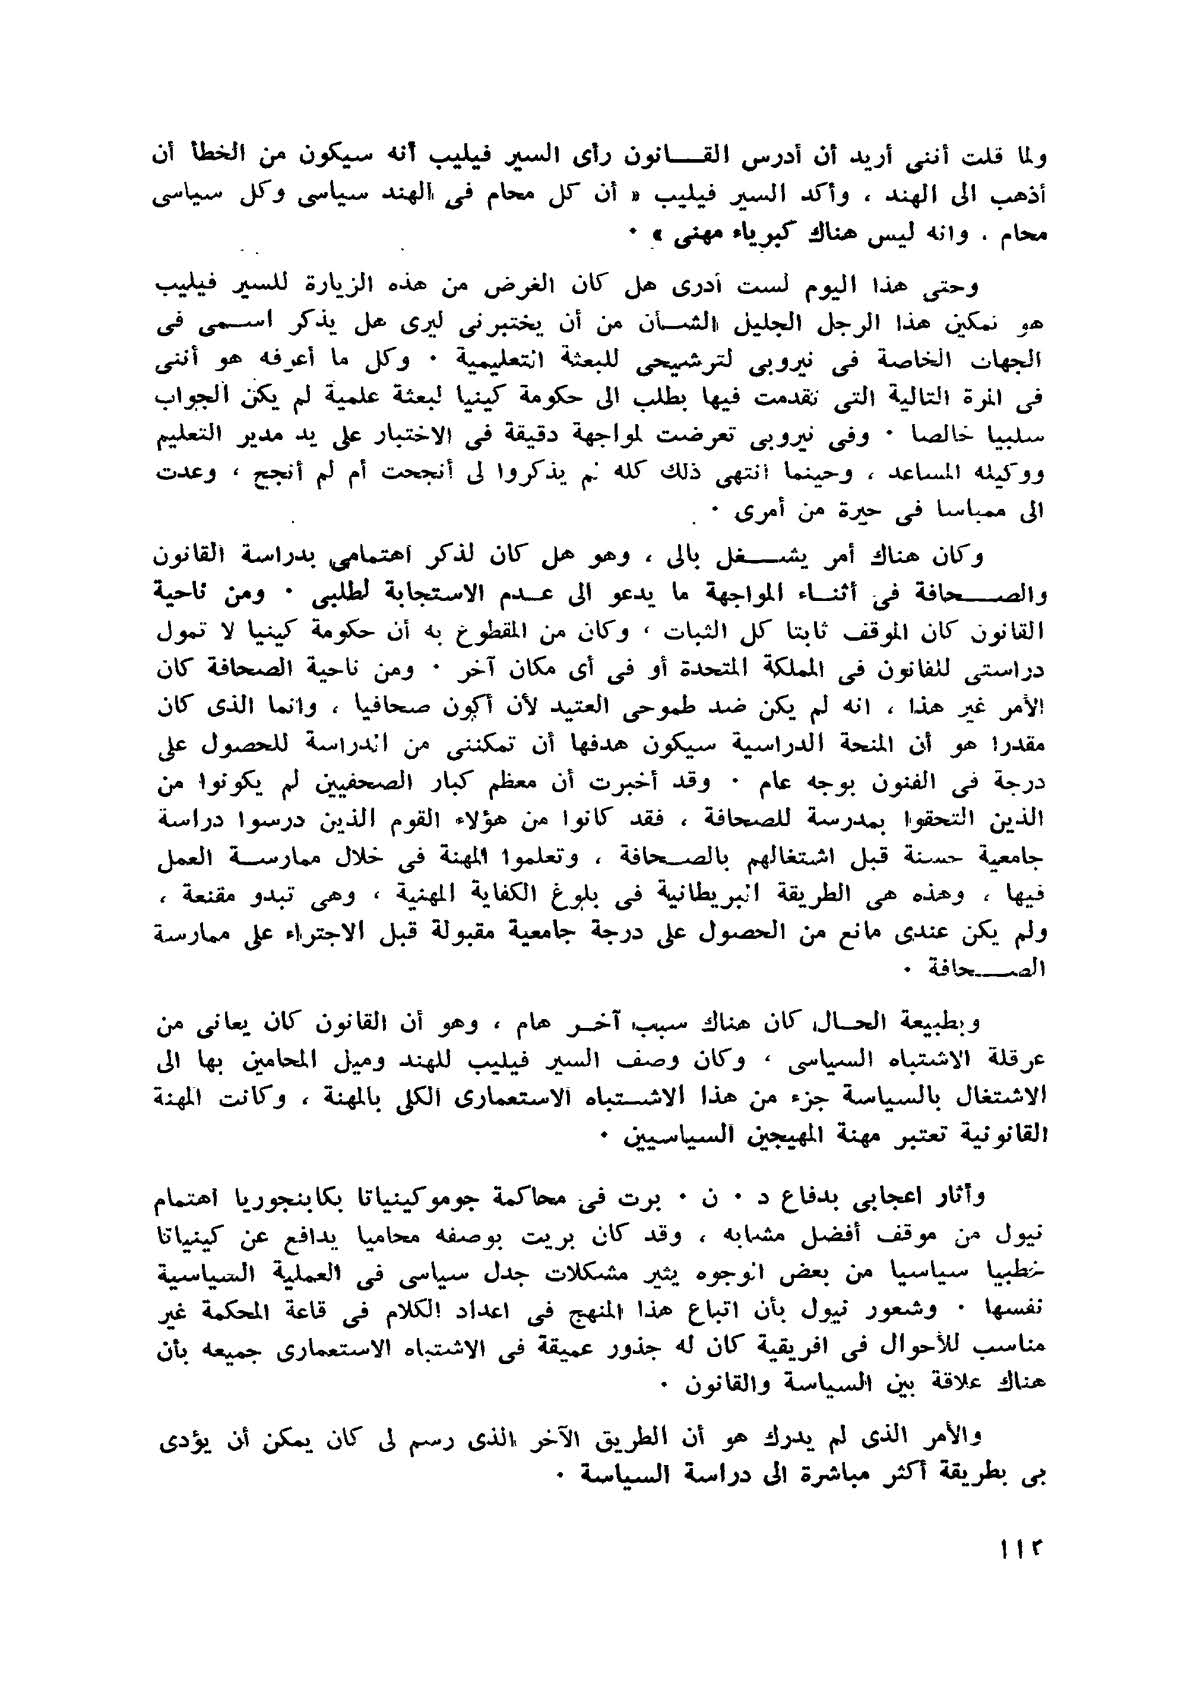 ولما قلت أننى أريد أن أدرس القــانون رأى السير فيليب أنه سيكون من الخطأ أن
أذهب الى الهند ، وأكد السير فيليب « أن كل محام فى الهند سياسى وكل سياسى
محام . وانه ليس هناك كبرياء مهنى » ·
وحتى هذا اليوم لست أدرى هل كان الغرض من هذه الزيارة للسير فيليب
هو تمكين هذا الرجل الجليل الشــأن من أن يختبرنى ليرى هل يذكر اســمى فى
الجهات الخاصة فى نيروبى لترشيحى للبعثة التعليمية · وكل ما أعرفه هو أننى
فى المرة التالية التى تقدمت فيها بطلب الى حكومة كينيا لبعثة علمية لم يكن الجواب
سلبيا خالصا · وفى نيروبى تعرضت لمواجهة دقيقة فى الاختبار على يد مدير التعليم
ووكيله المساعد ، وحينما انتهى ذلك كله لم يذكروا لى أنجحت أم لم أنجح ، وعدت
الى ممباسا فى حيرة من أمرى ·
وكان هناك أمر يشــغل بالى ، وهو هل كان لذكر اهتمامى بدراسة القانون
والصــحافة فى أثنــاء المواجهة ما يدعو الى عــدم الاستجابة لطلبى · ومن ناحية
القانون كان الموقف ثابتا كل الثبات ، وكان من المقطوع به أن حكومة كينيا لا تمول
دراستى للقانون فى المملكة المتحدة أو فى أى مكان آخر · ومن ناحية الصحافة كان
الأمر غير هذا ، انه لم يكن ضد طموحى العتيد لأن أكون صحافيا ، وانما الذى كان
مقدرا هو أن المنحة الدراسية سيكون هدفها أن تمكننى من الدراسة للحصول على
درجة فى الفنون بوجه عام · وقد أخبرت أن معظم كبار الصحفيين لم يكونوا من
الذين التحقوا بمدرسة للصحافة ، فقد كانوا من هؤلاء القوم الذين درسوا دراسة
جامعية حسنة قبل اشتغالهم بالصــحافة ، وتعلموا المهنة فى خلال ممارســة العمل
فيها ، وهذه هى الطريقة البريطانية فى بلوغ الكفاية المهنية ، وهى تبدو مقنعة ،
ولم يكن عندى مانع من الحصول على درجة جامعية مقبولة قبل الاجتراء على ممارسة
الصــحافة ·
وبطبيعة الحــال كان هناك سبب آخــر هام ، وهو أن القانون كان يعانى من
عرقلة الاشتباه السياسى ، وكان وصف السير فيليب للهند وميل المحامين بها الى
الاشتغال بالسياسة جزء من هذا الاشــتباه الاستعمارى الكلى بالمهنة ، وكانت المهنة
القانونية تعتبر مهنة المهيجين السياسيين ·
وأثار اعجابى بدفاع د · ن · برت فى محاكمة جوموكينياتا بكابنجوريا اهتمام
نيول من موقف أفضل مشابه ، وقد كان بريت بوصفه محاميا يدافع عن كينياتا
خطيبا سياسيا من بعض الوجوه يثير مشكلات جدل سياسى فى العملية السياسية
نفسها · وشعور نيول بأن اتباع هذا المنهج فى اعداد الكلام فى قاعة المحكمة غير
مناسب للأحوال فى افريقية كان له جذور عميقة فى الاشتباه الاستعمارى جميعه بأن
هناك علاقة بين السياسة والقانون ·
والأمر الذى لم يدرك هو أن الطريق الآخر الذى رسم لى كان يمكن أن يؤدى
بى بطريقة أكثر مباشرة الى دراسة السياسة ·
١١٢